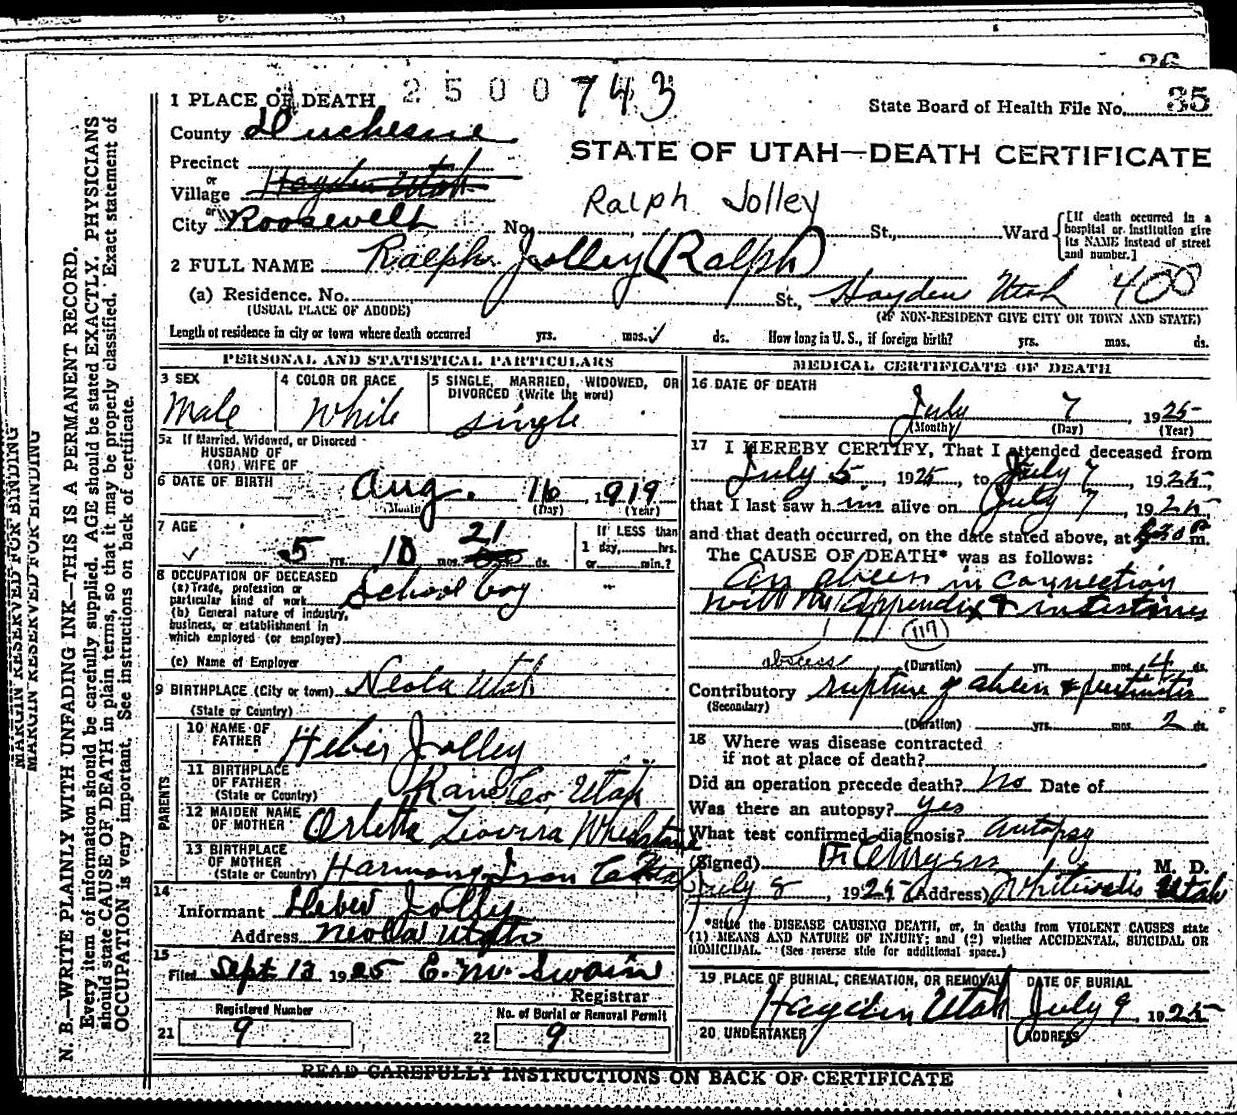 36
2500743
1 PLACE OF DEATH
State Board of Health File No. 35
County Duchesne
STATE OF UTAH—DEATH CERTIFICATE
Precinct
or
Village Hayden Utah
Ralph Jolley
or
City Roosevelt No. St., Ward
[If death occurred in a hospital or institution give its NAME instead of street and number.]
2 FULL NAME Ralph Jolley (Ralph)
(a) Residence. No. St., Hayden Utah 400
(USUAL PLACE OF ABODE) (IF NON-RESIDENT GIVE CITY OR TOWN AND STATE)
Length of residence in city or town where death occurred yrs. mos. ds. How long in U. S., if foreign birth? yrs. mos. ds.
PERSONAL AND STATISTICAL PARTICULARS
3 SEX
Male
4 COLOR OR RACE
White
5 SINGLE, MARRIED, WIDOWED, OR DIVORCED (Write the word)
single
5a If Married, Widowed, or Divorced
HUSBAND OF
(OR) WIFE OF
6 DATE OF BIRTH Aug. 16 1919
(Month) (Day) (Year)
7 AGE
5 yrs. 10 mos. 21 ds.
If LESS than
1 day, hrs.
or min.?
8 OCCUPATION OF DECEASED
(a) Trade, profession or
particular kind of work School boy
(b) General nature of industry,
business, or establishment in
which employed (or employer)
(c) Name of Employer
9 BIRTHPLACE (City or town) Neola Utah
(State or Country)
PARENTS
10 NAME OF
FATHER Heber Jolley
11 BIRTHPLACE
OF FATHER
(State or Country) Kane Co. Utah
12 MAIDEN NAME
OF MOTHER Orletta
13 BIRTHPLACE
OF MOTHER
(State or Country) Harmony Iron Co Utah
14
Informant Heber Jolley
Address Neola Utah
15
Filed Sept 12 1925 E. M. Swain
Registrar
Registered Number
21 9
No. of Burial or Removal Permit
22 9
MEDICAL CERTIFICATE OF DEATH
16 DATE OF DEATH
July 7, 1925
(Month) (Day) (Year)
17 I HEREBY CERTIFY, That I attended deceased from
July 5, 1925, to July 7, 1925,
that I last saw him alive on July 7, 1925,
and that death occurred, on the date stated above, at 30 P m.
The CAUSE OF DEATH* was as follows:
An abcess in connection
with the appendix & intestines
(117)
abscess
(Duration) yrs. mos. 4 ds.
Contributory rupture of abcess & peritonitis
(Secondary)
(Duration) yrs. mos. 2 ds.
18 Where was disease contracted
if not at place of death?
Did an operation precede death? No Date of
Was there an autopsy? yes
What test confirmed diagnosis? autopsy
(Signed) M. D.
July 8, 1925 (Address) Whiterocks Utah
*State the DISEASE CAUSING DEATH, or, in deaths from VIOLENT CAUSES state
(1) MEANS AND NATURE OF INJURY; and (2) whether ACCIDENTAL, SUICIDAL OR
HOMICIDAL. (See reverse side for additional space.)
19 PLACE OF BURIAL, CREMATION, OR REMOVAL
Hayden Utah
DATE OF BURIAL
July 9, 1925
20 UNDERTAKER
ADDRESS
READ CAREFULLY INSTRUCTIONS ON BACK OF CERTIFICATE
MARGIN RESERVED FOR BINDING
MARGIN RESERVED FOR BINDING
N. B.—WRITE PLAINLY WITH UNFADING INK—THIS IS A PERMANENT RECORD.
Every item of information should be carefully supplied. AGE should be stated EXACTLY. PHYSICIANS
should state CAUSE OF DEATH in plain terms, so that it may be properly classified. Exact statement of
OCCUPATION is very important. See instructions on back of certificate.